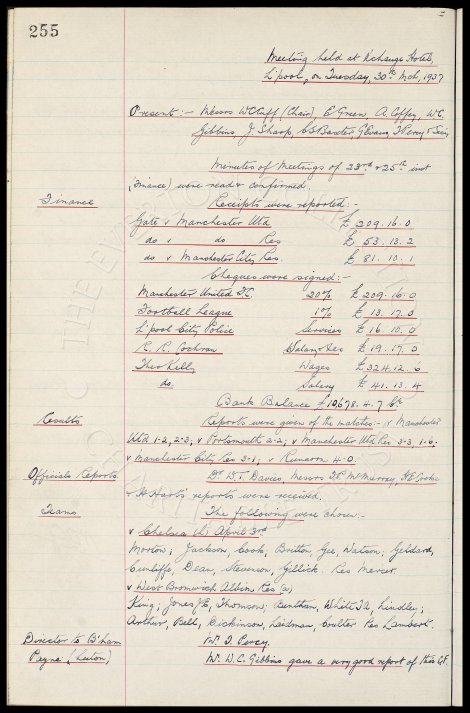 255
Meeting held at Exchange Hotel,
L'pool, on Tuesday, 30th Mch, 1937
Present:- Messrs W.C. Cuff (Chair), E. Green, A. Coffey, W.C.
Gibbins, J. Sharp, C.S. Baxter, G. Evans, T. Percy & Secy
Minutes of Meetings of 23rd & 25th inst
(Finance) were read & confirmed.
Finance Receipts were reported:-
Gate v Manchester Utd £ 209. 16. 0
do v do Res £ 53. 13. 2
do v Manchester City Res. £ 81. 10. 1
Cheques were signed:-
Manchester United F.C. 20% £ 209. 16. 0
Football League 1% £ 13. 17. 0
L'pool City Police Services £ 16. 10. 0
R. R. Cochran £ 19. 17. 0
Theo Kelly Wages £ 324. 12. 6
do. Salary £ 41. 13. 4
Bank Balance £10678. 4. 7 Cr
Results Reports were given of the matches:- v Manchester
Utd 1-2, 2-3; v Portsmouth 2-2; v Manchester Utd Res 3-3, 1-6;
v Manchester City Res 3-1; v Runcorn 4-0.
Officials Reports. Dr. W.T. Davies, Messrs T.P. McMurray, H.E. Cooke
& H. Hart's reports were received.
Teams The following were chosen:-
v Chelsea (h) April 3rd
Morton; Jackson, Cook; Britton, Gee, Watson; Geldard,
Cunliffe, Dean, Stevenson, Gillick. Res Mercer.
v West Bromwich Albion Res (a)
King; Jones J.E, Thomson; Bentham, White T.A, Lindley;
Arthur, Bell, Dickinson, Laidman, Coulter Res Lambert.
Director to B'ham Mr. T. Percy.
Payne (Luton) Mr. W.C. Gibbins gave a very good report of this C.F.